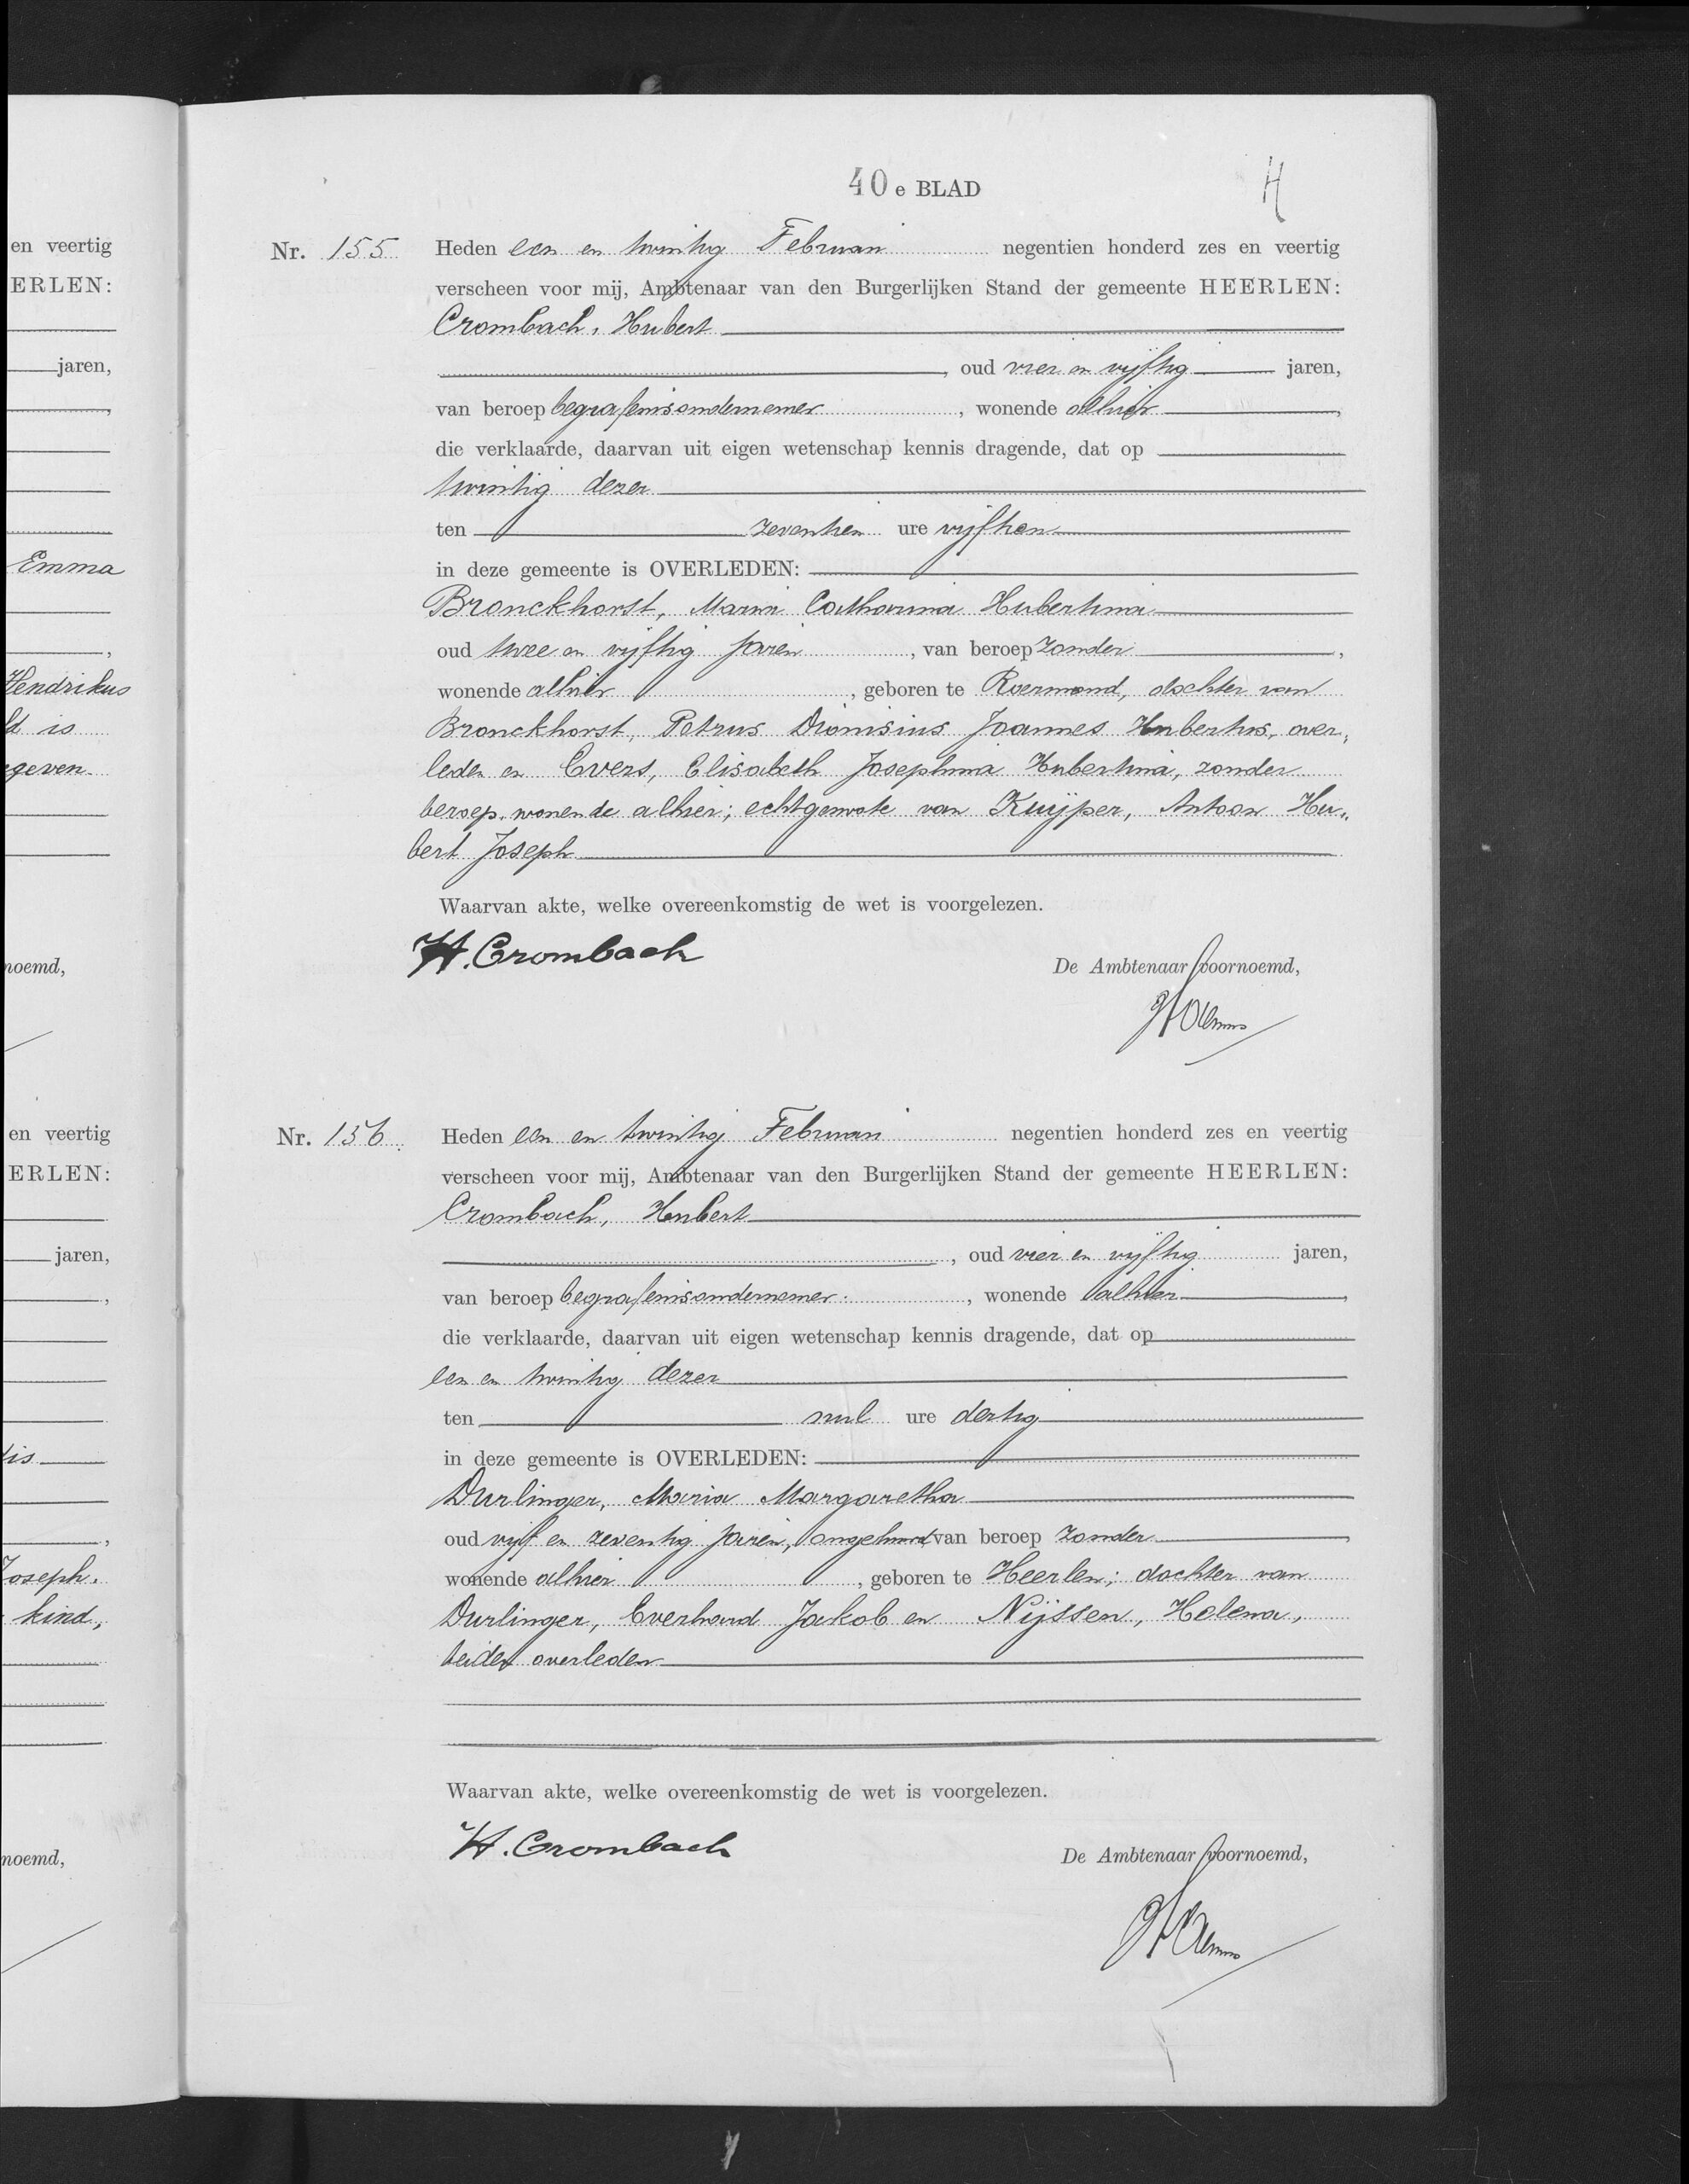 40 e BLAD
H
Nr. 155 Heden een en twintig Februari negentien honderd zes en veertig
verscheen voor mij, Ambtenaar van den Burgerlijken Stand der gemeente HEERLEN:
Crombach, Hubert
, oud vier en vijftig jaren,
van beroep begrafenisondernemer, wonende alhier,
die verklaarde, daarvan uit eigen wetenschap kennis dragende, dat op
twintig dezer
ten zeventien ure vijftien
in deze gemeente is OVERLEDEN:
Bronckhorst, Maria Catharina Hubertina
oud twee en vijftig jaren, van beroep zonder,
wonende alhier, geboren te Roermond, dochter van
Bronckhorst, Petrus Dionisius Joannes Hubertus, over„
leden en Evers, Elisabeth Josephina Hubertina, zonder
beroep, wonende alhier; echtgenoote van Kuijper, Antoon Hu„
bert Joseph
Waarvan akte, welke overeenkomstig de wet is voorgelezen.
H. Crombach
De Ambtenaar voornoemd,
Nr. 156. Heden een en twintig Februari negentien honderd zes en veertig
verscheen voor mij, Ambtenaar van den Burgerlijken Stand der gemeente HEERLEN:
Crombach, Hubert
, oud vier en vijftig jaren,
van beroep begrafenisondernemer, wonende alhier,
die verklaarde, daarvan uit eigen wetenschap kennis dragende, dat op
een en twintig dezer
ten nul ure dertig
in deze gemeente is OVERLEDEN:
Durlinger, Maria Margaretha
oud vijf en zeventig jaren, ongehuwd van beroep zonder,
wonende alhier, geboren te Heerlen; dochter van
Durlinger, Everhard Jakob en Nijssen, Helena,
beiden overleden
Waarvan akte, welke overeenkomstig de wet is voorgelezen.
H. Crombach
De Ambtenaar voornoemd,
en veertig
ERLEN:
jaren,
Emma
Hendrikus
ld is
geven.
noemd,
en veertig
ERLEN:
jaren,
Joseph.
kind,
noemd,